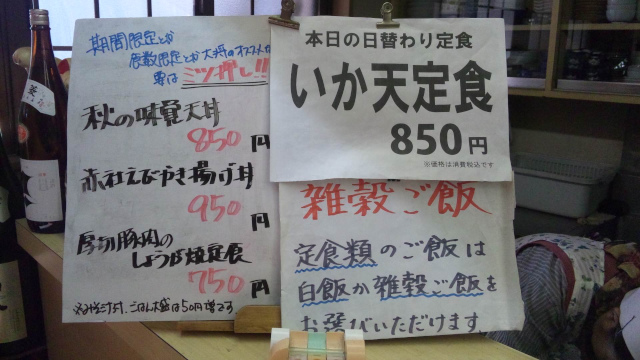 期間限定とか
食数限定とか大将のオススメが
要は ミツガし!!!
秋の味覚天丼
850円
赤社えびかき揚げ丼
950円
厚切豚肉の
しょうが焼定食
750円
ごはん大盛は50円増です
本日の日替わり定食
いか天定食
850円
※価格は消費税込です
雑穀ご飯
定食類のご飯は
白飯か雑穀ご飯を
お選びいただけます